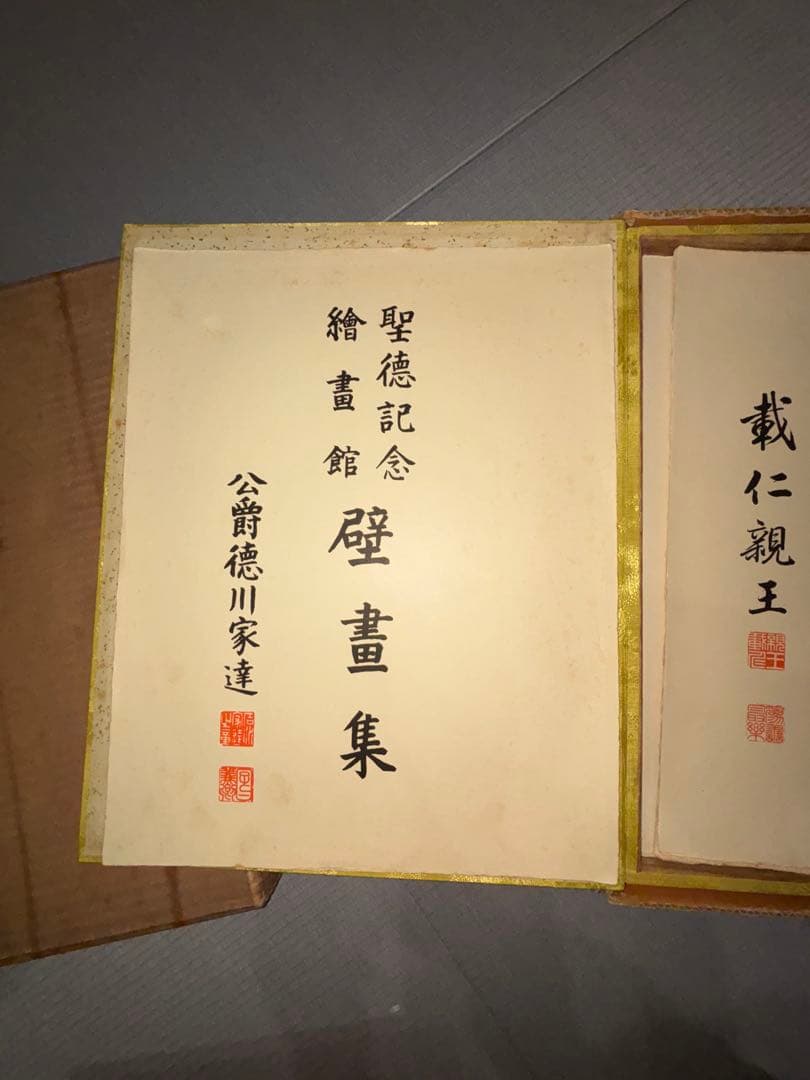 載仁親王
聖德記念
繪畫館
壁畫集
公爵德川家達